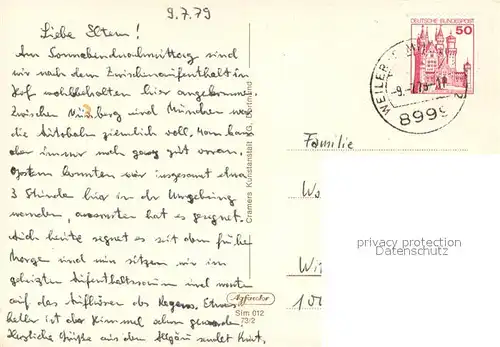 9.7.79
Liebe Eltern!
Am Sonnabendnachmittag sind
wir nach dem Zwischenaufenthalt in
Hof wohlbehalten hier angekommen.
Zwischen Nürnberg und München war
die Autobahn ziemlich voll. Man kam
aber immer noch ganz gut voran.
Gestern konnten wir insgesamt etwa
3 Stunden hier in der Umgebung
wandern, ansonsten hat es geregnet.
Auch heute regnet es seit dem frühen
Morgen und wir sitzen wir im
geheizten Aufenthaltsraum und warten
auf das Aufhören des Regens. Etwas
heller ist der Himmel schon geworden.
Herzliche Grüße aus dem Allgäu sendet Kurt,
Cramers Kunstanstalt KG, Dortmund
Agfacolor
Slm 012
73/2
DEUTSCHE BUNDESPOST
50
WEILER
-9.-7.79
8999
Familie
privacy protection
Datenschutz